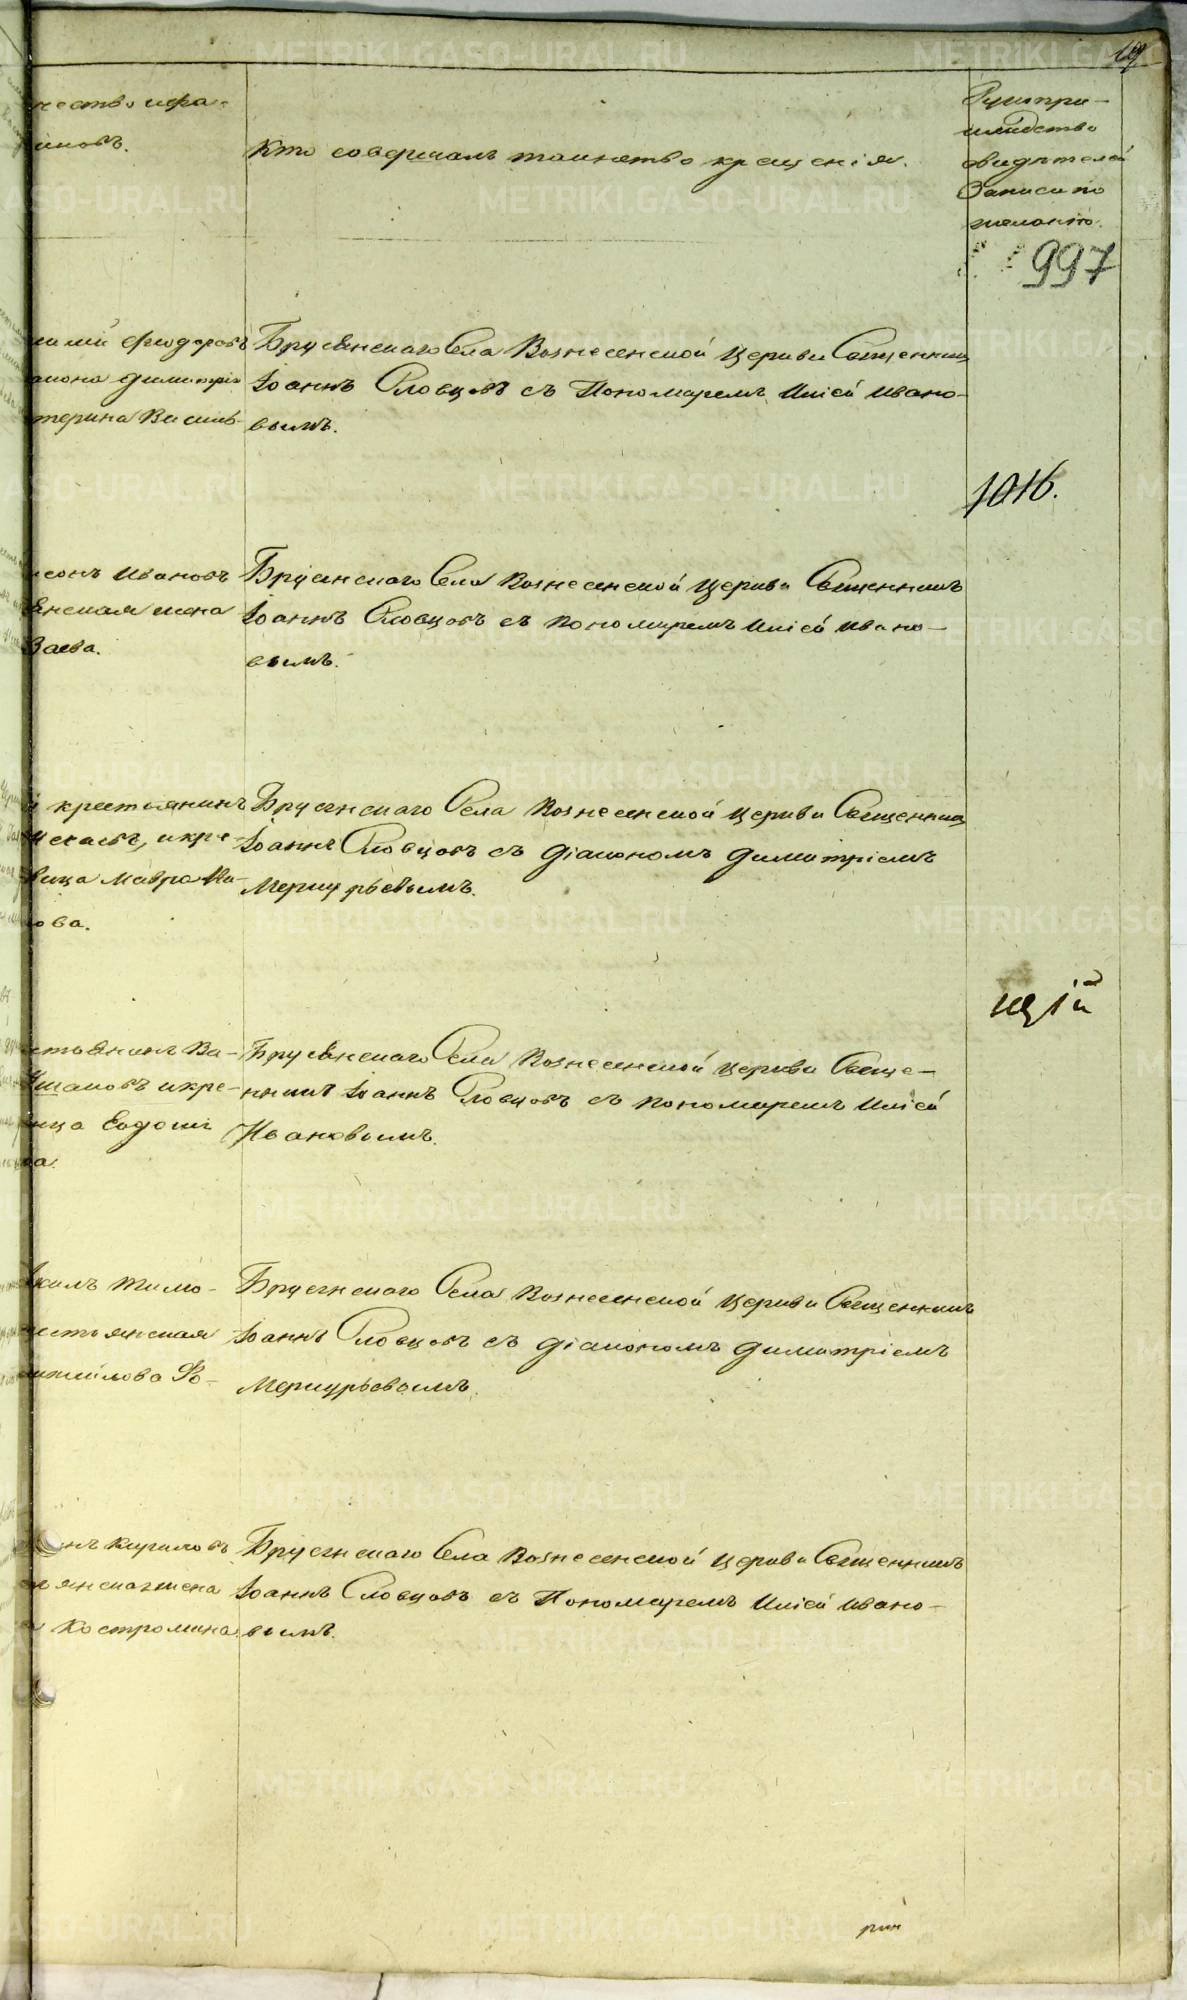 19
чество и фа-
Рукопри-
кладство
свидѣтелей
записи по
желанію.
Кто совершалъ таинство крещенія.
997
Ѳеодоровъ
Димитрія
терина Василь-
Брусянскаго Села Вознесенской Церкви Священникъ
Іоаннъ Словцовъ съ Пономаремъ Иліей Ивано-
вымъ.
1016.
Ивановъ
жена
заева.
Брусянскаго Села Вознесенской Церкви Священникъ
Іоаннъ Словцовъ съ пономаремъ Иліей Ивано-
вымъ.
крестьянинъ
и кре-
вица Мавра
ова.
Брусянскаго Села Вознесенской Церкви Священникъ
Іоаннъ Словцовъ съ Діакономъ Димитріемъ
Меркурьевымъ.
стьянинъ Ва-
шаковъ и кре-
ица Евдокі
ва.
Брусянскаго Села Вознесенской Церкви Свяще-
нникъ Іоаннъ Словцовъ съ пономаремъ Иліей
Ивановымъ.
кимъ Тимо-
стьянская
Брусянскаго Села Вознесенской Церкви Священникъ
Іоаннъ Словцовъ съ Діакономъ Димитріемъ
Меркурьевымъ.
Кириловъ
янская жена
Костромина
Брусянскаго Села Вознесенской Церкви Священникъ
Іоаннъ Словцовъ съ Пономаремъ Иліей Ивано-
вымъ.
METRIKI.GASO-URAL.RU